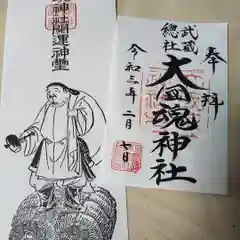 奉拝
武蔵
總社
大國魂神社
令和三年二月
七日
神社開運神璽